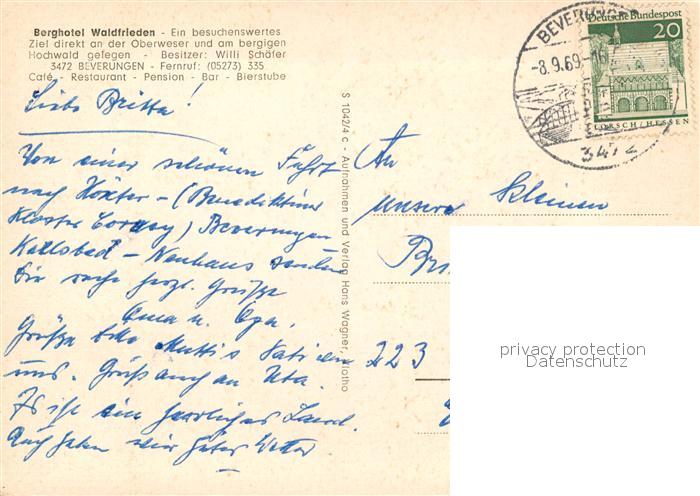 Berghotel Waldfrieden - Ein besuchenswertes
Ziel direkt an der Oberweser und am bergigen
Hochwald gelegen - Besitzer: Willi Schäfer
3472 BEVERUNGEN - Fernruf: (05273) 335
Café - Restaurant - Pension - Bar - Bierstube
Liebe Britta!
Von einer schönen Fahrt
nach Höxter - (Benediktiner
Kloster Corvey) Beverungen
Karlsbad - Neuhaus senden
Dir recht herzl. Grüße
Oma u. Opa.
Grüße bitte Mutti u. Vati von
uns. Grüß auch an Uta.
Es ist ein herrliches Land.
Auch haben wir gutes Wetter
S 1042/4 c - Aufnahmen und Verlag Hans Wagner, Vlotho
BEVERUNGEN
-8.9.69-16
3472
Deutsche Bundespost
20
LORSCH/HESSEN
An
unsere kleinen
223
privacy protection
Datenschutz